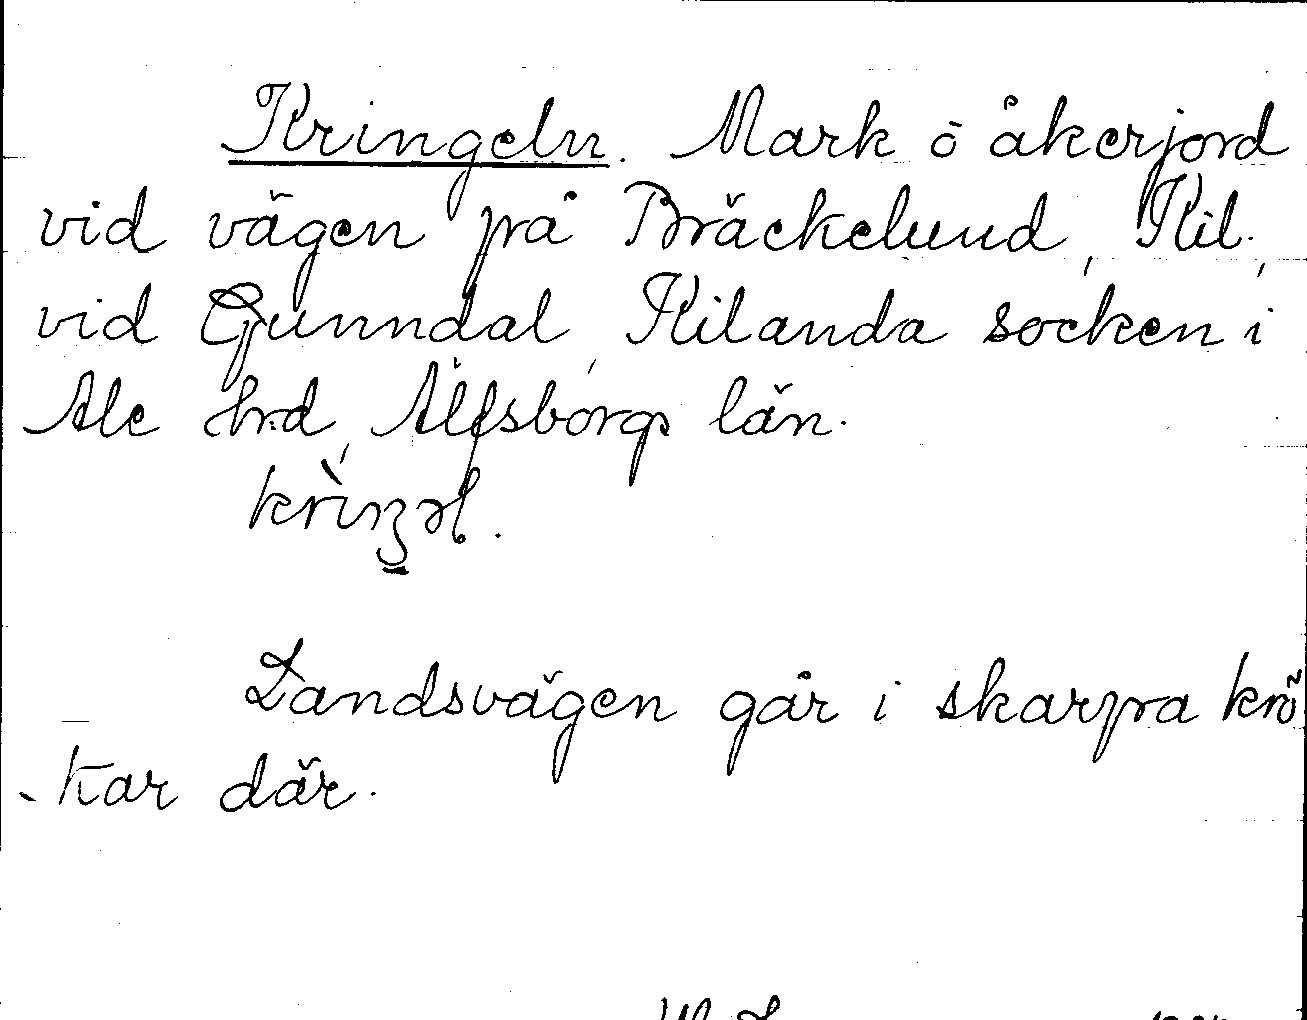 Kringeln. Mark ö åkerjord
vid vägen på Bräckelund, Kil.,
vid Gunndal, Kilanda socken i
Ale hrd, Älfsborgs län.
Landsvägen går i skarpa krö
-kar där.